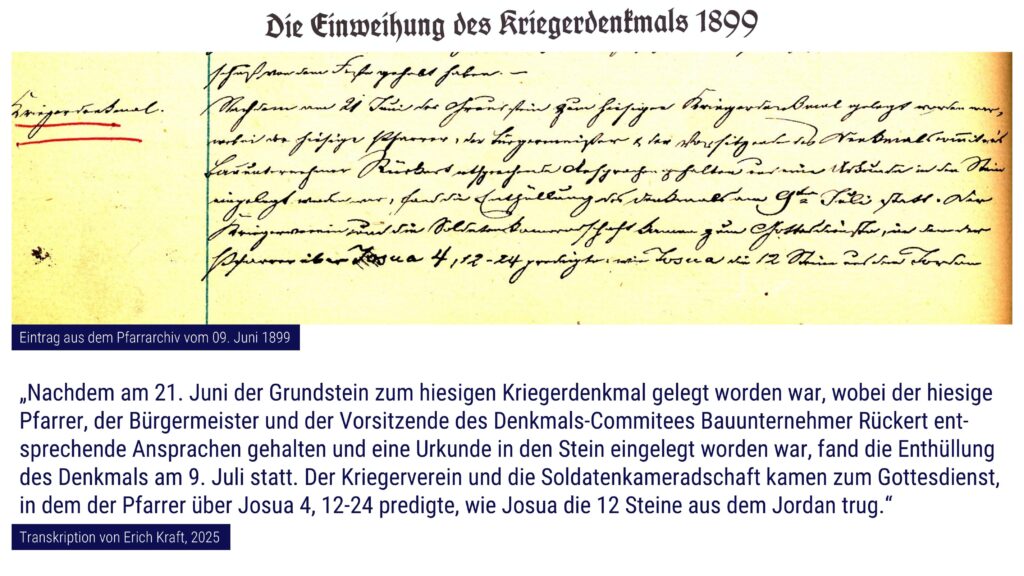 Die Einweihung des Kriegerdenkmals 1899
schaft vor dem Feste gehalt haben. —
Kriegerdenkmal.
Nachdem am 21 Juni der Grundstein zum hiesigen Kriegerdenkmal gelegt worden war,
wobei der hiesige Pfarrer, der Bürgermeister & der Vorsitzende des Denkmalscommitees
Bauunternehmer Rückert entsprechende Ansprachen gehalten und eine Urkunde in den Stein
eingelegt worden war, fand die Enthüllung des Denkmals am 9ten Juli statt. Der
Kriegerverein und die Soldatenkameradschaft kamen zum Gottesdienste, in dem der
Pfarrer über Josua 4, 12-24 predigte: wie Josua die 12 Steine aus dem Jordan
Eintrag aus dem Pfarrarchiv vom 09. Juni 1899
„Nachdem am 21. Juni der Grundstein zum hiesigen Kriegerdenkmal gelegt worden war, wobei der hiesige
Pfarrer, der Bürgermeister und der Vorsitzende des Denkmals-Commitees Bauunternehmer Rückert ent-
sprechende Ansprachen gehalten und eine Urkunde in den Stein eingelegt worden war, fand die Enthüllung
des Denkmals am 9. Juli statt. Der Kriegerverein und die Soldatenkameradschaft kamen zum Gottesdienst,
in dem der Pfarrer über Josua 4, 12-24 predigte, wie Josua die 12 Steine aus dem Jordan trug.“
Transkription von Erich Kraft, 2025